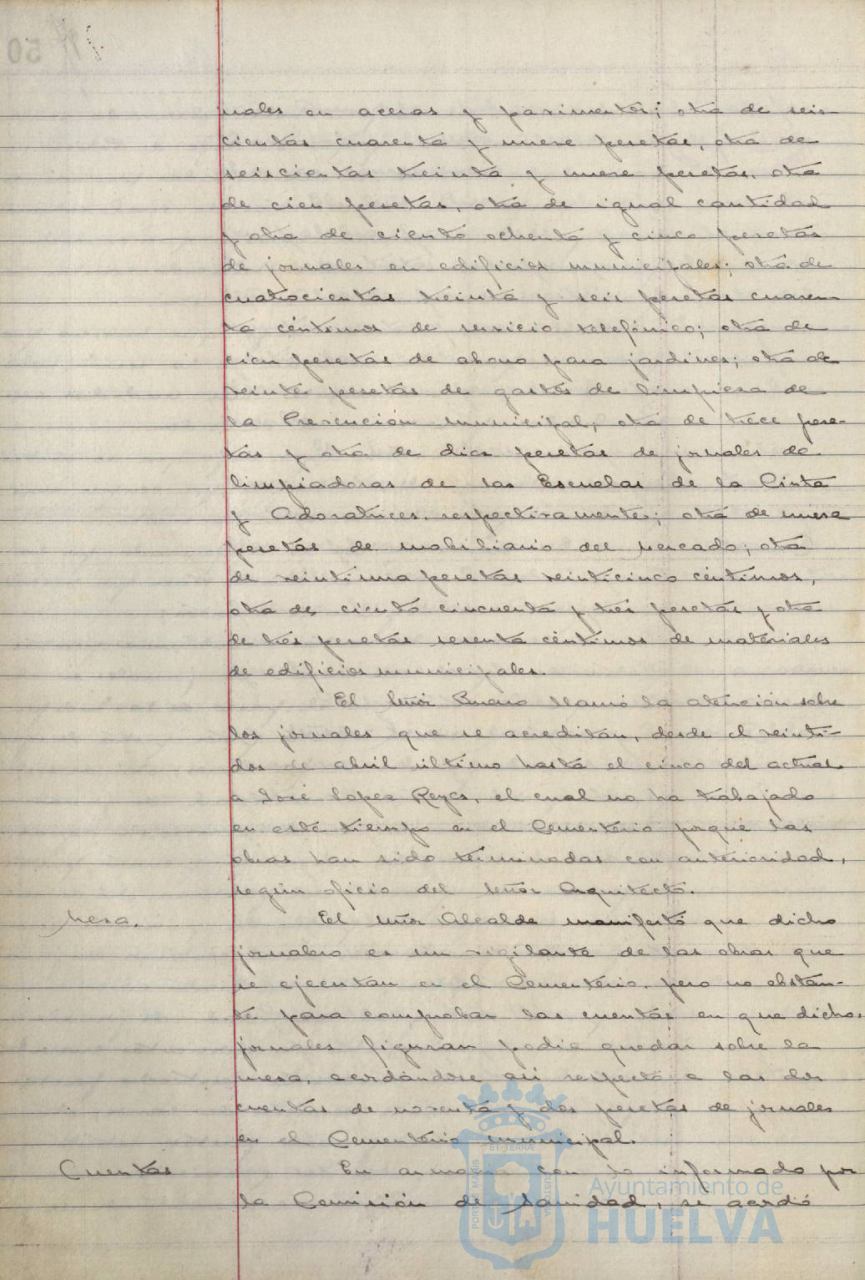 nales en aceras y pavimentos; otra de seis-
cientas cuarenta y nueve pesetas, otra de
seiscientas treinta y nueve pesetas, otra
de cien pesetas, otra de igual cantidad
y otra de ciento ochenta y cinco pesetas
de jornales en edificios municipales; otra de
cuatrocientas treinta y seis pesetas cuaren-
ta céntimos de servicio telefónico; otra de
cien pesetas de abono para jardines; otra de
veinte pesetas de gastos de limpieza de
la Prevención municipal, otra de trece pese-
tas y otra de diez pesetas de jornales de
limpiadoras de las Escuelas de la Cinta
y Adoratrices, respectivamente; otra de nueve
pesetas de mobiliario del mercado; otra
de veintiuna pesetas veinticinco céntimos,
otra de ciento cincuenta y tres pesetas y otra
de tres pesetas sesenta céntimos de materiales
de edificios municipales.
El Señor Bueno llamó la atención sobre
los jornales que se acreditan, desde el veinti-
dos de abril último hasta el cinco del actual
a José Lopez Reyes, el cual no ha trabajado
en este tiempo en el Cementerio porque las
obras han sido terminadas con anterioridad,
según oficio del Señor Arquitecto.
Mesa. El Señor Alcalde manifestó que dicho
jornalero es un vigilante de las obras que
se ejecutan en el Cementerio, pero no obstan-
te para comprobar las cuentas en que dichos
jornales figuran podia quedar sobre la
mesa, acordándose asi respecto a las dos
cuentas de noventa y dos pesetas de jornales
en el Cementerio municipal.
Cuentas En armonia con lo informado por
la Comisión de Sanidad, se acordó
Ayuntamiento de
HUELVA